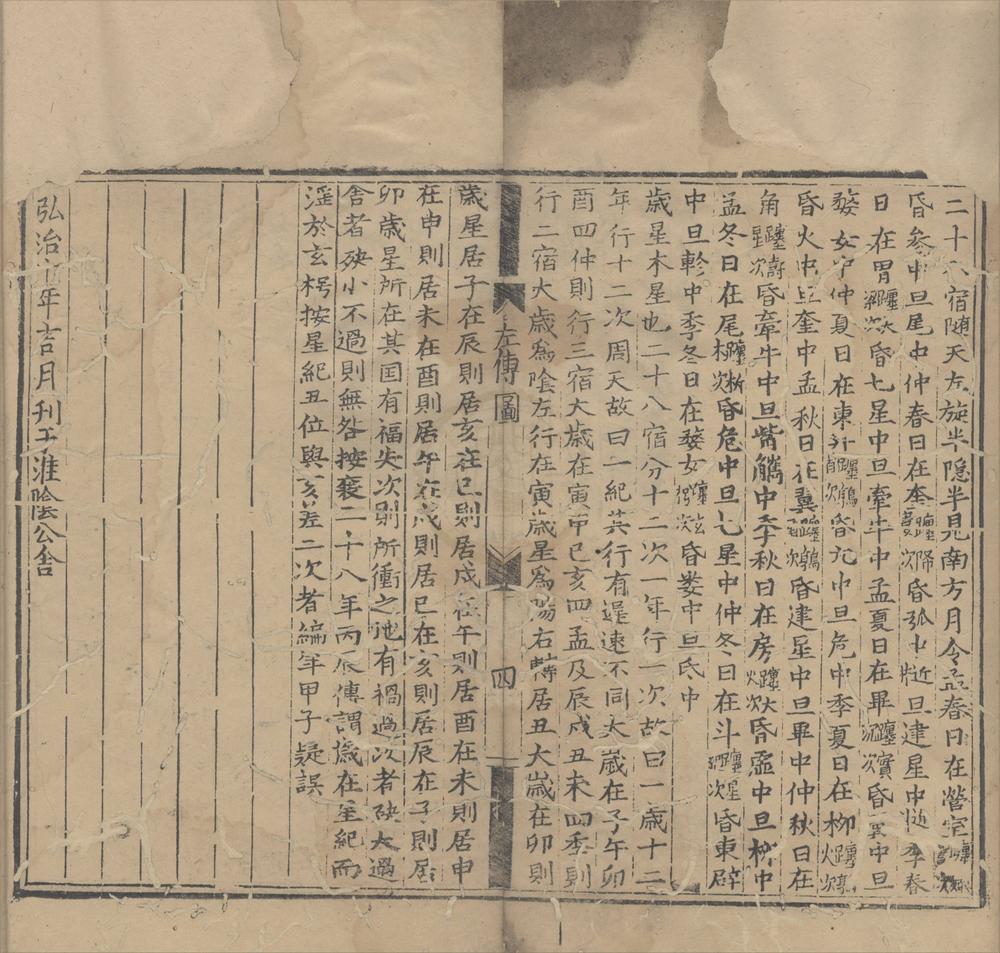 二十八宿随天左旋半隱半見南方月令孟春日在營室躔
昏參中旦尾中仲春日在奎躔降婁次昏弧中近旦建星中近季春
日在胃躔大梁次昏七星中旦牽牛中孟夏日在畢躔實沉次昏翼中旦
婺女中仲夏日在東井躔鶉首次昏亢中旦危中季夏日在柳躔鶉火次
昏火中旦奎中孟秋日在翼躔鶉尾次昏建星中旦畢中仲秋日在
角躔壽星次昏牽牛中旦觜觿中季秋日在房躔大火次昏虛中旦柳中
孟冬日在尾躔析木次昏危中旦七星中仲冬日在斗躔星紀次昏東辟
中旦軫中季冬日在婺女躔玄枵次昏婁中旦氐中
歲星木星也二十八宿分十二次一年行一次故曰一歲十二
年行十二次周天故曰一紀其行有遲速不同太歲在子午卯
酉四仲則行三宿大歲在寅申巳亥四孟及辰戌丑未四季則
行二宿大歲爲陰左行在寅歲星爲陽右轉居丑大歲在卯則
左傳圖 四
歲星居子在辰則居亥在巳則居戌在午則居酉在未則居申
在申則居未在酉則居午在戌則居巳在亥則居辰在子則居
卯歲星所在其国有福失次則所衝之地有禍過次者殃大過
舍者殃小不過則無咎按襄二十八年丙辰傳謂歲在星紀而
淫於玄枵按星紀丑位與亥差二次者編年甲子疑誤
弘治年吉月刊于淮陰公舎